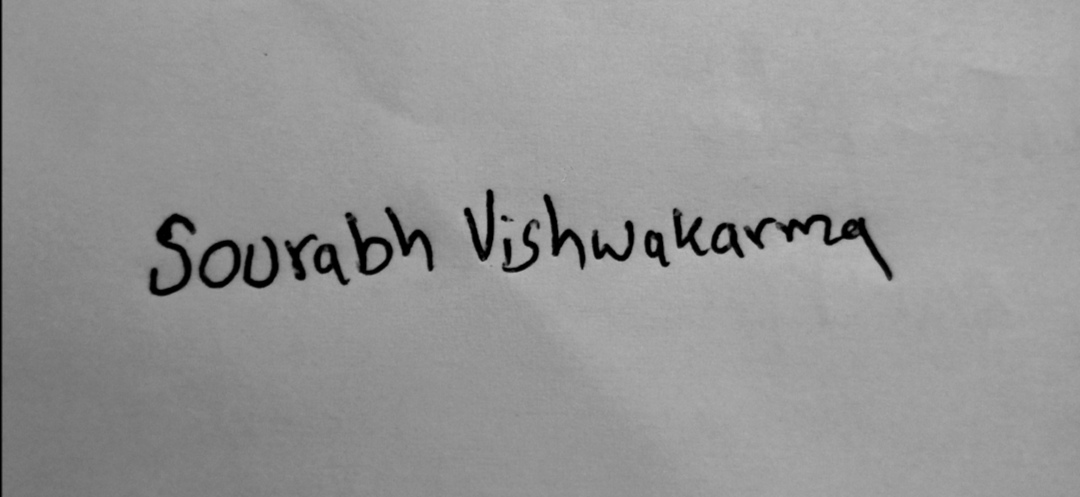 Sourabh Vishwakarma